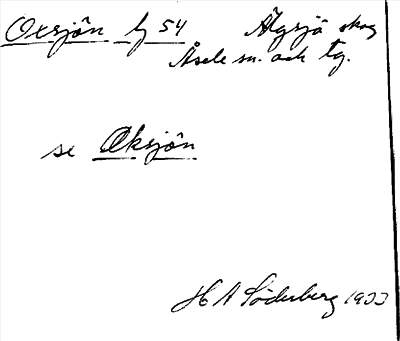 Oxsjön lj 54 Älgsjö skog
Åsele sn. och tg.
se Oksjön
H A Söderberg 1933